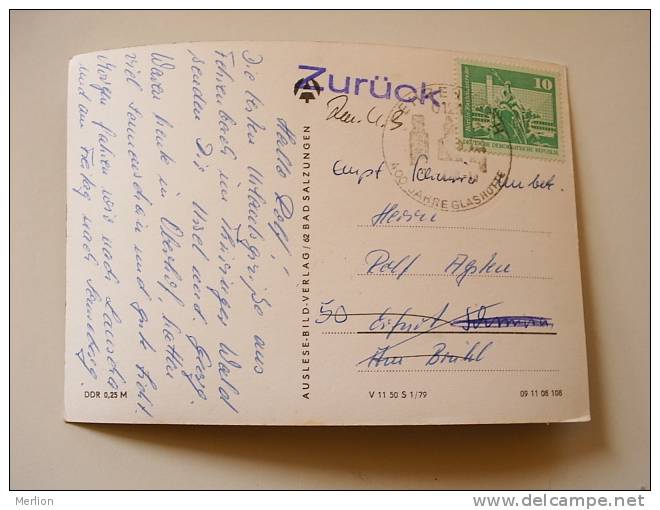 Hallo Rolf!
Die besten Urlaubsgrüße aus
Fehrenbach im Thüringer Wald
senden Dir Ursel und
Waren heute in Oberhof, hatten
viel Sonnenschein und gute Sicht.
Morgen fahren wir nach Lauscha
und am Freitag nach Sonneberg.
DDR 0,25 M
AUSLESE-BILD-VERLAG / 62 BAD SALZUNGEN
Zurück
10
DEUTSCHE DEMOKRATISCHE REPUBLIK
400 JAHRE GLASHÜTTE
Empf. unbek.
Herrn
Rolf
50 Erfurt
Am Brühl
V 11 50 S 1/79
09 11 08 108
Merlion
http://www.delcampe.net